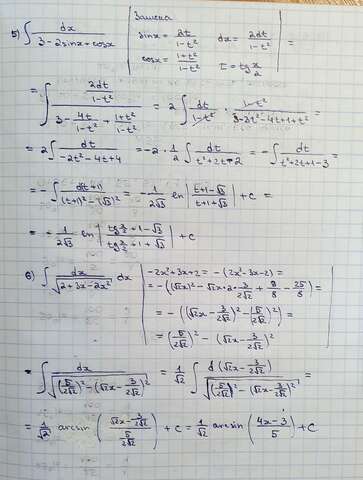 5) ∫ dx / (3 - 2sinx + cosx) | Замена sinx = 2t / (1-t²) dx = 2dt / (1-t²) cosx = (1+t²) / (1-t²) t = tg x/2 | =
= ∫ (2dt / (1-t²)) / (3 - 4t / (1-t²) + (1+t²) / (1-t²)) = 2 ∫ dt / (1-t²) · (1-t²) / (3-3t²-4t+1+t²) =
= 2 ∫ dt / (-2t²-4t+4) = -2 · 1/2 ∫ dt / (t²+2t-2) = - ∫ dt / (t²+2t+1-3) =
= - ∫ d(t+1) / ((t+1)² - (√3)²) = - 1 / (2√3) ln | (t+1-√3) / (t+1+√3) | + C =
= - 1 / (2√3) ln | (tg x/2 + 1 - √3) / (tg x/2 + 1 + √3) | + C
6) ∫ dx / √(2+3x-2x²) dx | -2x²+3x+2 = -(2x²-3x-2) =
= -((√2x)² - √2x · 2 · 3 / (2√2) + 9/8 - 25/8) =
= -((√2x - 3 / (2√2))² - (5 / (2√2))²) =
= (5 / (2√2))² - (√2x - 3 / (2√2))²
= ∫ dx / √((5 / (2√2))² - (√2x - 3 / (2√2))²) = 1/√2 ∫ d(√2x - 3 / (2√2)) / √((5 / (2√2))² - (√2x - 3 / (2√2))²) =
= 1/√2 arcsin ((√2x - 3 / (2√2)) / (5 / (2√2))) + C = 1/√2 arcsin ((4x-3) / 5) + C